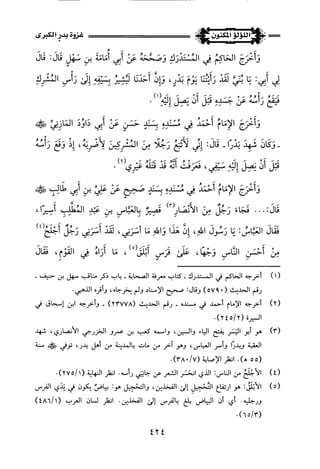 اللؤلؤ المكنون
غزوة بدر الكبرى
وَأَخْرَجَ الحَاكِمُ فِي المُسْتَدْرَكِ وَصَحَّحَهُ عَنْ أَبِي أُمَامَةَ بنِ سَهْلٍ قَالَ: قَالَ
لِي أَبِي: يَا بُنَيَّ لَقَدْ رَأَيْتُنَا يَوْمَ بَدْرٍ، وَإِنَّ أَحَدَنَا لَيُشِيرُ بِسَيْفِهِ إِلَى رَأْسِ المُشْرِكِ
فَيَقَعُ رَأْسُهُ عَنْ جَسَدِهِ قَبْلَ أَنْ يَصِلَ إِلَيْهِ(١).
وَأَخْرَجَ الإِمَامُ أَحْمَدُ فِي مُسْنَدِهِ بِسَنَدٍ حَسَنٍ عَنْ أَبِي دَاوُدَ المَازِنِيِّ ﷺ
ـ وَكَانَ شَهِدَ بَدْرًا ـ قَالَ: إِنِّي لَأَتْبَعُ رَجُلًا مِنَ المُشْرِكِينَ لِأَضْرِبَهُ، إِذْ وَقَعَ رَأْسُهُ
قَبْلَ أَنْ يَصِلَ إِلَيْهِ سَيْفِي، فَعَرَفْتُ أَنَّهُ قَدْ قَتَلَهُ غَيْرِي(٢).
وَأَخْرَجَ الإِمَامُ أَحْمَدُ فِي مُسْنَدِهِ بِسَنَدٍ صَحِيحٍ عَنْ عَلِيِّ بنِ أَبِي طَالِبٍ
قَالَ: ... فَجَاءَ رَجُلٌ مِنَ الأَنْصَارِ(٣) قَصِيرٌ بِالعَبَّاسِ بنِ عَبْدِ المُطَّلِبِ أَسِيرًا،
فَقَالَ العَبَّاسُ: يَا رَسُولَ اللهِ، إِنَّ هَذَا وَاللهِ مَا أَسَرَنِي، لَقَدْ أَسَرَنِي رَجُلٌ أَجْلَحُ(٤)
مِنْ أَحْسَنِ النَّاسِ وَجْهًا، عَلَى فَرَسٍ أَبْلَقَ(٥)، مَا أُرَاهُ فِي القَوْمِ، فَقَالَ
(١) أخرجه الحاكم في المستدرك ـ كتاب معرفة الصحابة ـ باب ذكر مناقب سهل بن حنيف ـ
رقم الحديث (٥٧٩٠) وقال: صحيح الإسناد ولم يخرجاه، وأقره الذهبي.
(٢) أخرجه الإمام أحمد في مسنده ـ رقم الحديث (٢٣٧٧٨) ـ وأخرجه ابن إسحاق في
السيرة (٢٤٥/٢).
(٣) هو أبو اليَسَر بفتح الياء والسين، واسمه كعب بن عمرو الخزرجي الأنصاري، شهد
العقبة وبدرًا وأسر العباس، وهو آخر من مات بالمدينة من أهل بدر، توفي سنة
(٥٥ هـ). انظر الإصابة (٣٨٠/٧).
(٤) الأَجْلَحُ من الناس: الذي انحَسَر الشعر عن جانبَيْ رأسه. انظر النهاية (٢٧٥/١).
(٥) الأَبْلَقُ: هو ارتفاع التَّحْجِيل إلى الفخذين، والتحجيل هو: بياضٌ يكون في يَدَيِ الفرس
ورجليه. أي أن البياض بلغ بالفرس إلى الفخذين. انظر لسان العرب (٤٨٦/١)
(٦٥/٣).
٤٢٤